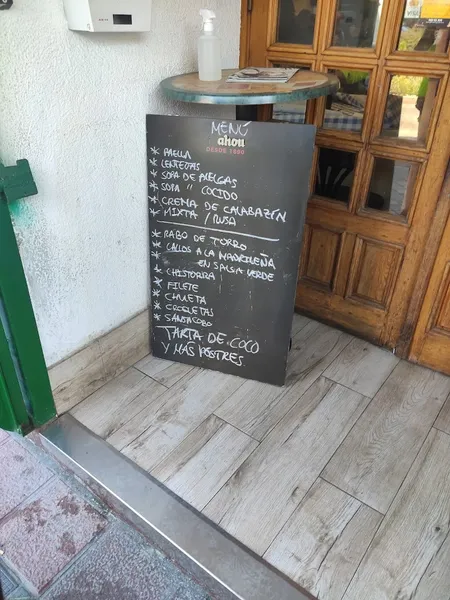 MENÚ
ahou
DESDE 1890
* PAELLA
* LENTEJAS
* SOPA DE ACELGAS
* SOPA " COCIDO
* CREMA DE CALABAZÍN
* MIXTA / RUSA
* RABO DE TORO
* CALLOS A LA MADRILEÑA
EN SALSA VERDE
* CHISTORRA
* FILETE
* CHULETA
* CROQUETAS
* SANJACOBO
TARTA DE COCO
Y MÁS POSTRES